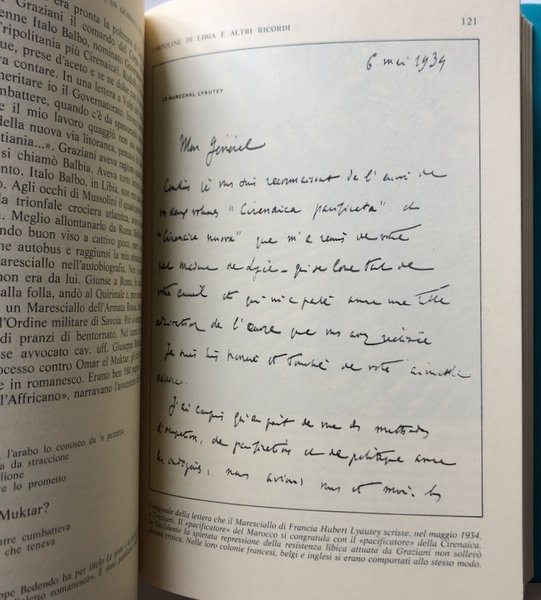 era pronta la polmon
Graziani il comando
enne Italo Balbo, nominato Gover
Tripolitania più Cirenaica). Rodol
que, prese d'aceto e se ne dolse con
va contare. In una lettera a Volpi
meritare io il Governatorato. Invece
mbattere, quando c'è da spasso
e il mio lavoro quaggiù non
della nuova via litoranea, pensando
stiania...». Graziani aveva ragione
si chiamò Balbia. Aveva torto
ento, Italo Balbo, in Libia, non era
o. Agli occhi di Mussolini il des
la trionfale crociera atlantica, con
e. Meglio allontanarlo da Roma.
endo buon viso a cattivo gioco,
ne autobus e raggiunsi la mia
maresciallo nell'autobiografia. Non
non era da lui. Giunse a Roma,
alla folla, andò al Quirinale e, per
un Maresciallo dell'Armata Rossa,
l'Ordine militare di Savoia. Poi si
di pranzi di bentornato. Nel
se avvocato cav. uff. Giuseppe
ocesso contro Omar el Muktar, gli
e in romanesco. Erano ben 180 pagine
l'Affricano», narravano l'avventura
l'arabo lo conosco da 'n pezzetto
a da straccione
glione
e lo prometto
Muktar?
ntre cumbatteva
che teneva
ppe Bedendo ha per titolo Le gesta
dialetto romanesco».
CARTOLINE DI LIBIA E ALTRI RICORDI
121
6 mai 1934
LE MARÉCHAL LYAUTEY
Mon Général
Combien je vous suis reconnaissant de l'envoi de
vos deux volumes "Cirenaica pacificata" et
"Cirenaica nuova" que m'a remis de votre
part Madame de
votre amitié et qui m'a parlé avec une telle
admiration de l'œuvre que vous avez réalisée
Je suis très honoré et touché de votre aimable
dédicace.
J'ai compris qu'au point de vue des méthodes
d'occupation, de pacification et de politique avec
les indigènes, nous avions vous et moi les
L'originale della lettera che il Maresciallo di Francia Hubert Lyautey scrisse, nel maggio 1934,
a Graziani. Il «pacificatore» del Marocco si congratula con il «pacificatore» della Cirenaica.
In Occidente la spietata repressione della resistenza libica attuata da Graziani non sollevò
alcuna critica. Nelle loro colonie francesi, belgi e inglesi si erano comportati allo stesso modo.